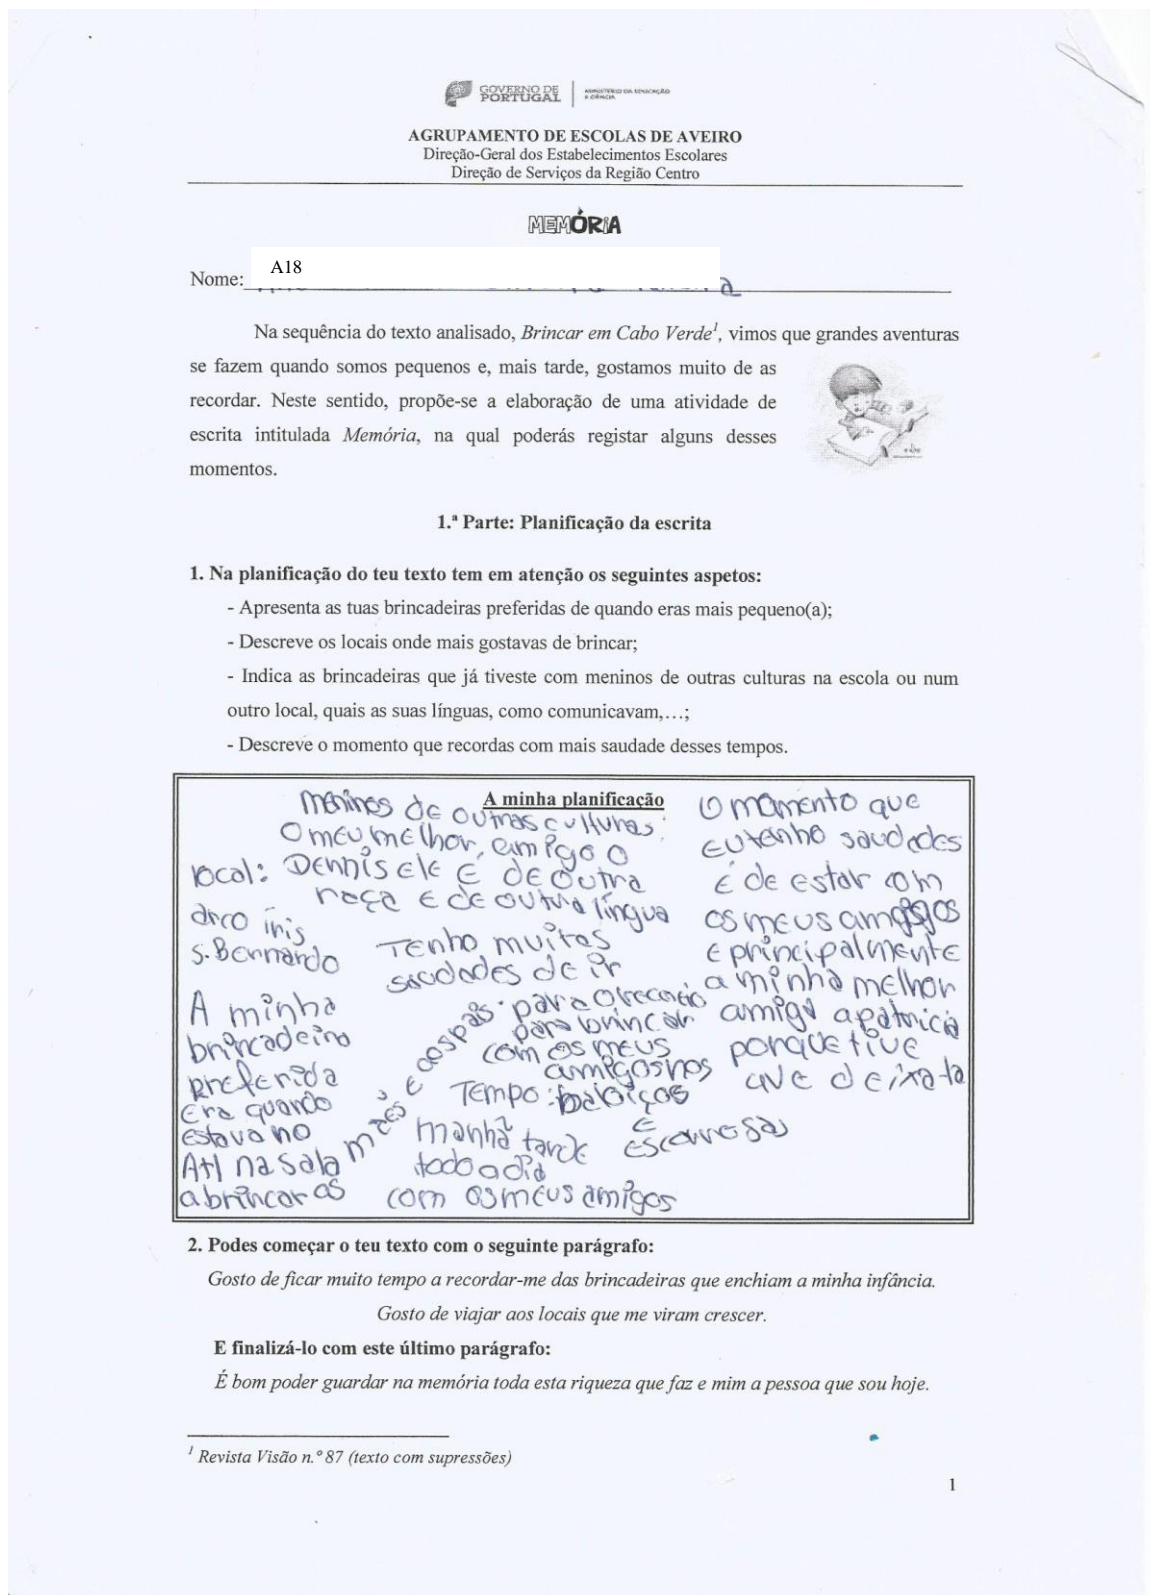 GOVERNO DE
PORTUGAL
MINISTÉRIO DA EDUCAÇÃO
E CIÊNCIA
AGRUPAMENTO DE ESCOLAS DE AVEIRO
Direção-Geral dos Estabelecimentos Escolares
Direção de Serviços da Região Centro
MEMÓRiA
Nome: A18
Na sequência do texto analisado, Brincar em Cabo Verde¹, vimos que grandes aventuras
se fazem quando somos pequenos e, mais tarde, gostamos muito de as
recordar. Neste sentido, propõe-se a elaboração de uma atividade de
escrita intitulada Memória, na qual poderás registar alguns desses
momentos.
1.ª Parte: Planificação da escrita
1. Na planificação do teu texto tem em atenção os seguintes aspetos:
- Apresenta as tuas brincadeiras preferidas de quando eras mais pequeno(a);
- Descreve os locais onde mais gostavas de brincar;
- Indica as brincadeiras que já tiveste com meninos de outras culturas na escola ou num
outro local, quais as suas línguas, como comunicavam,…;
- Descreve o momento que recordas com mais saudade desses tempos.
A minha planificação
meninos de outras culturas:
O meu melhor amigo o
Dennis ele é de outra
raça e de outra língua
local:
arco íris
S. Bernardo
A minha
brincadeira
preferida
era quando
estava no
Atl na sala
a brincar as
mães e aos pais
Tenho muitas
saudades de ir
para o recreio
para brincar
com os meus
amigos nos
baloiços
e
escorregas
Tempo:
manhã tarde
todo a dia
com os meus amigos
O momento que
eu tenho saudades
é de estar com
os meus amigos
e principalmente
a minha melhor
amiga a patricia
porque tive
que deixa-la
2. Podes começar o teu texto com o seguinte parágrafo:
Gosto de ficar muito tempo a recordar-me das brincadeiras que enchiam a minha infância.
Gosto de viajar aos locais que me viram crescer.
E finalizá-lo com este último parágrafo:
É bom poder guardar na memória toda esta riqueza que faz e mim a pessoa que sou hoje.
¹ Revista Visão n.º 87 (texto com supressões)
1